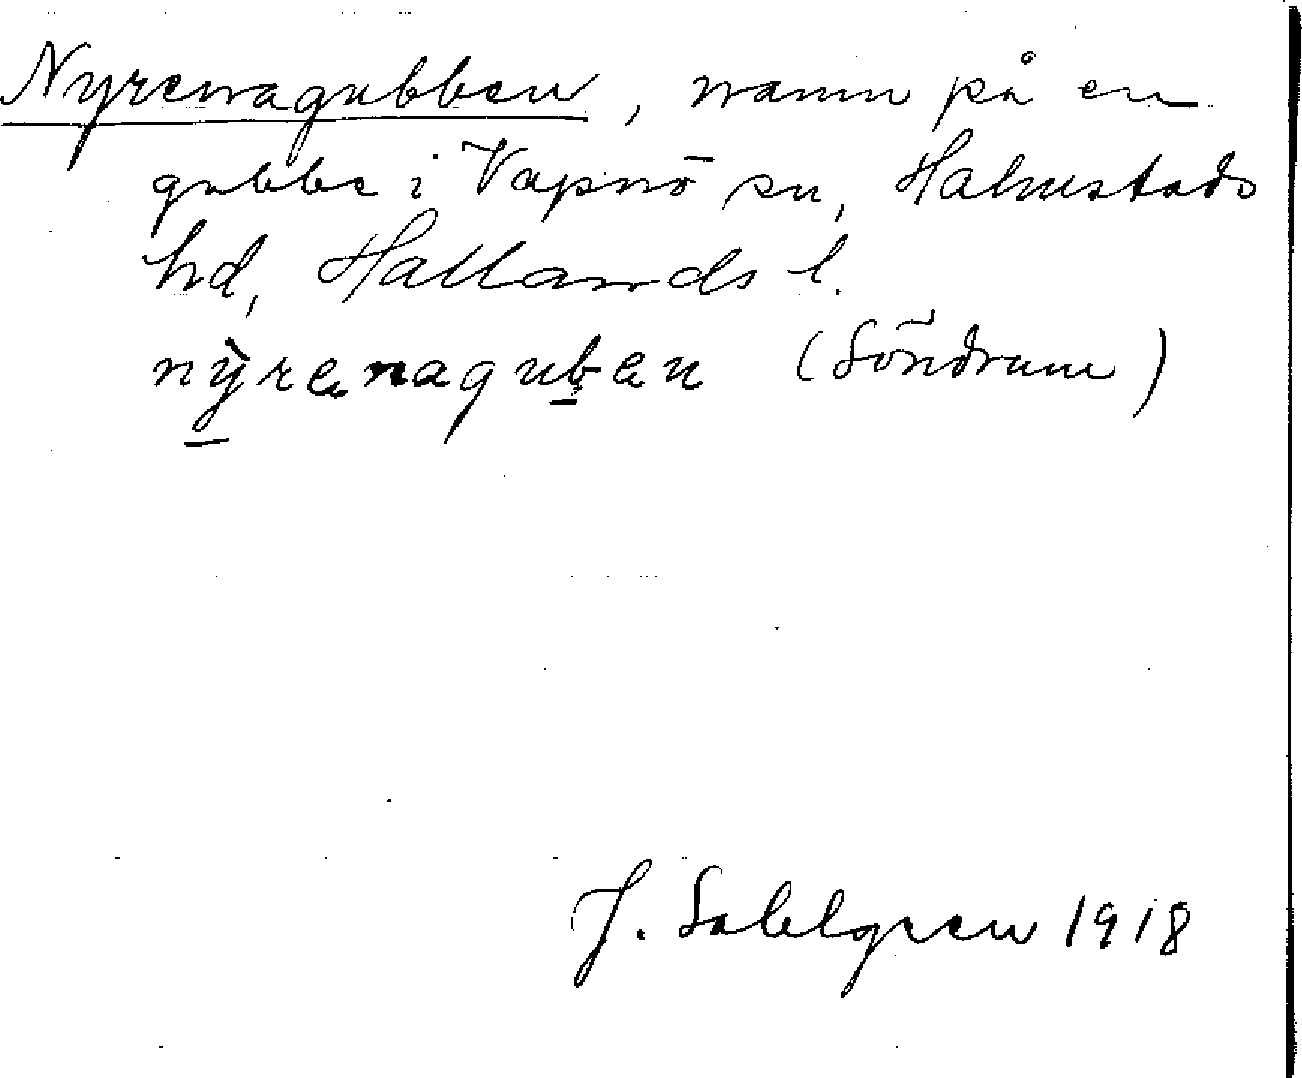 Nyrenagubben, namn på en
gubbe i Vapnö sn, Halmstads
hd, Hallands l.
nỳrenaguben (Söndrum)
J. Sahlgren 1918